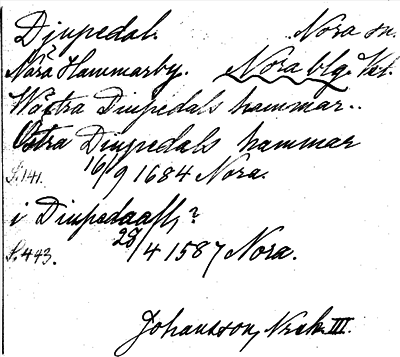 Djupedal. Nora sn.
Nära Hammarby. Nora blg. Vrl.
Wästra Diupedals hammar..
Östra Diupedals hammar
S. 141. 16/9 1684 Nora.
i Diupedaall,?
S. 443. 28/4 1587 Nora.
Johansson, Nrsk. III.